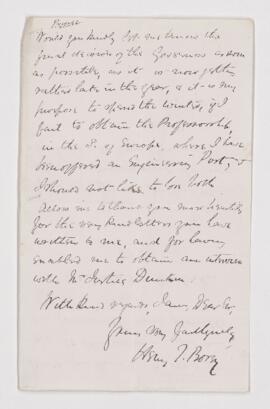 Would you kindly let me know the
final decision of the Governors as soon
as possible, as it is now getting
rather late in the year, & it is my
purpose to spend the winter, if I
fail to obtain the Professorship,
in the S. of Europe, where I have
been offered an Engineering Post, &
I should not like to lose both
Allow me to thank you most heartily
for the very kind letters you have
written to me, and for having
enabled me to obtain an interview
with Mr Justice
With kind regards, I am, Dear Sir,
Yours very faithfully
Henry T.